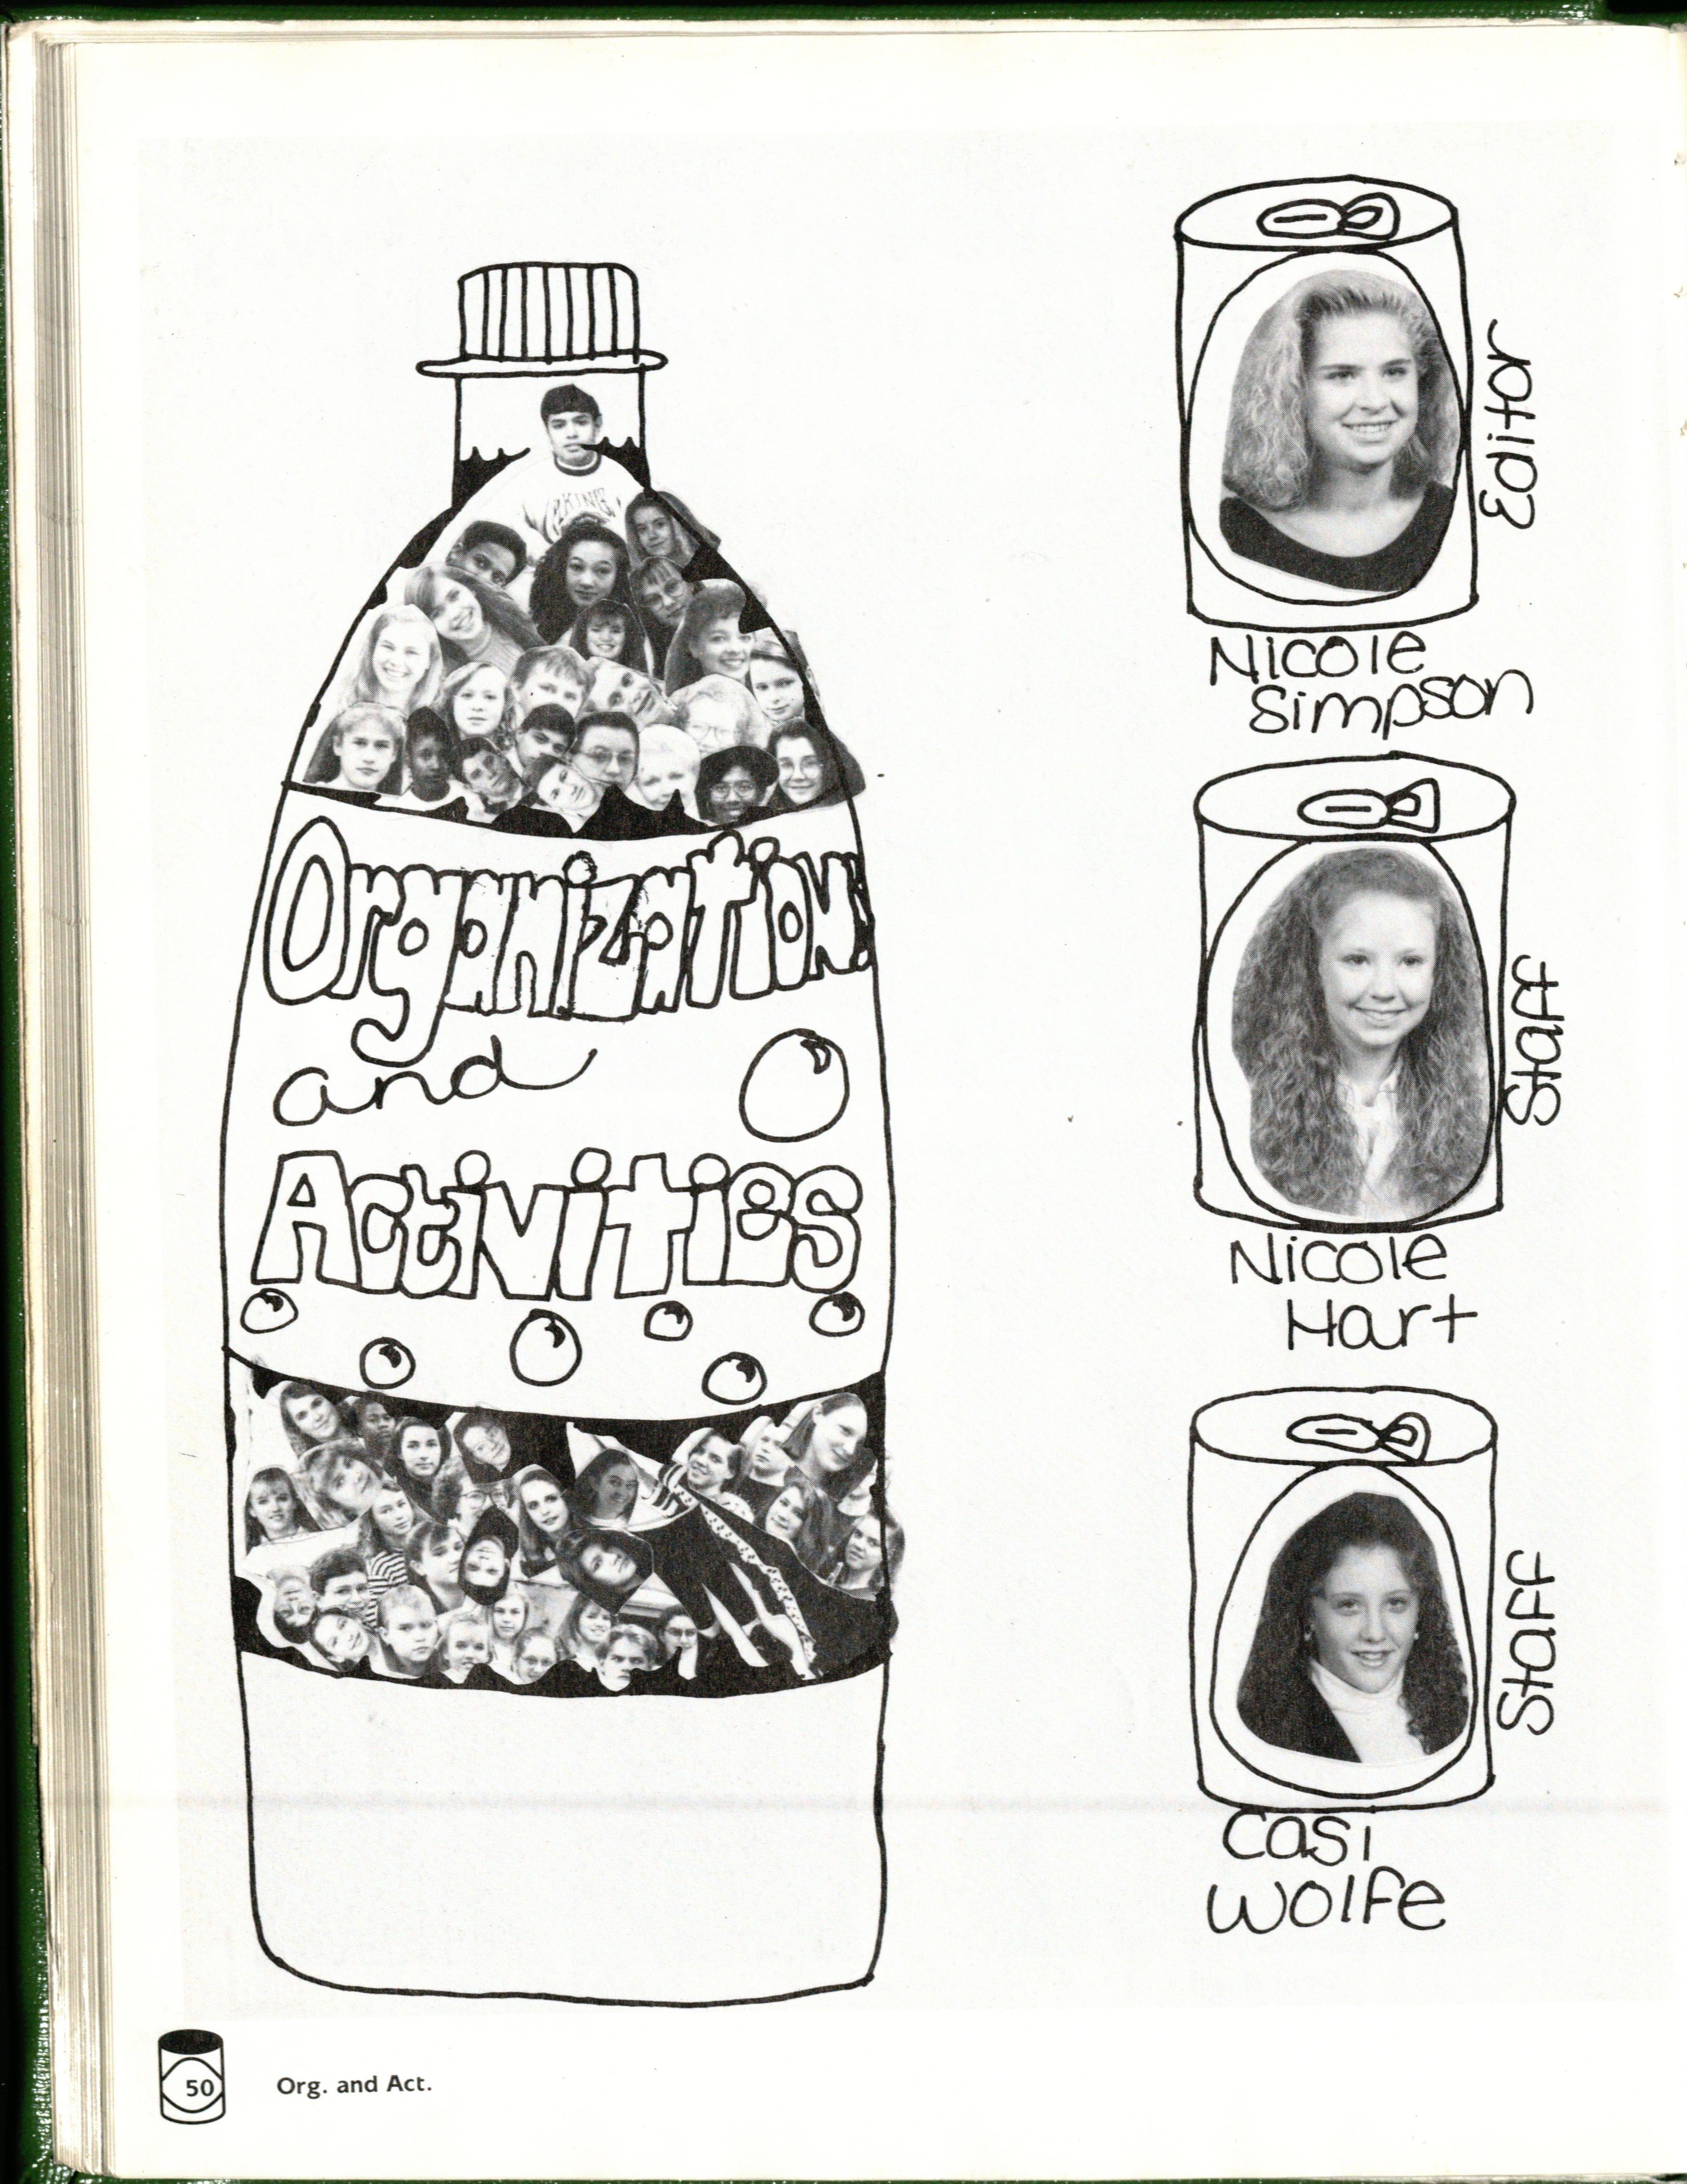 Organizations
and
Activities
Editor
Nicole
Simpson
Staff
Nicole
Hart
Staff
Casi
Wolfe
50
Org. and Act.